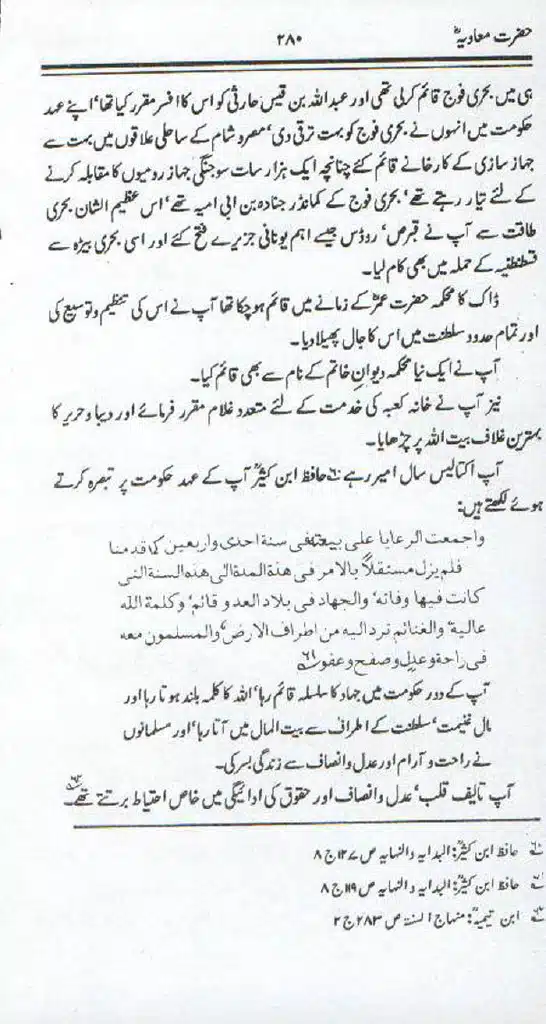 حضرت معاویہؓ ۲۸۰
ہی میں بحری فوج قائم کرلی تھی اور عبداللہ بن قیس حارثی کو اس کا افسر مقرر کیا تھا، اپنے عہد
حکومت میں انہوں نے بحری فوج کو بہت ترقی دی، مصر و شام کے ساحلی علاقوں میں بہت سے
جہاز سازی کے کارخانے قائم کئے چنانچہ ایک ہزار سات سو جنگی جہاز رومیوں کا مقابلہ کرنے
کے لئے تیار رہتے تھے، بحری فوج کے کمانڈر جنادہ بن ابی امیہ تھے، اس عظیم الشان بحری
طاقت سے آپ نے قبرص، روڈس جیسے اہم یونانی جزیرے فتح کئے اور اسی بحری بیڑہ سے
قسطنطنیہ کے حملہ میں بھی کام لیا۔
ڈاک کا محکمہ حضرت عمرؓ کے زمانے میں قائم ہوچکا تھا آپ نے اس کی تنظیم و توسیع کی
اور تمام حدود سلطنت میں اس کا جال پھیلا دیا۔
آپ نے ایک نیا محکمہ دیوانِ خاتم کے نام سے بھی قائم کیا۔
نیز آپ نے خانہ کعبہ کی خدمت کے لئے متعدد غلام مقرر فرمائے اور دیبا و حریر کا
بہترین غلاف بیت اللہ پر چڑھایا۔
آپ اکتالیس سال امیر رہے ۶۰؎ حافظ ابن کثیرؒ آپ کے عہد حکومت پر تبصرہ کرتے
ہوئے لکھتے ہیں:
واجمعت الرعایا علی بیعتہ فی سنة احدی واربعین کما قدمنا
فلم یزل مستقلاً بالامر فی ھذہ المدة الی ھذہ السنة التی
کانت فیھا وفاتہ، والجھاد فی بلاد العدو قائم، وکلمة اللہ
عالیة، والغنائم ترد الیہ من اطراف الارض، والمسلمون معہ
فی راحة وعدل وصفح وعفو ۶۱؎
آپ کے دور حکومت میں جہاد کا سلسلہ قائم رہا، اللہ کا کلمہ بلند ہوتا رہا اور
مال غنیمت، سلطنت کے اطراف سے بیت المال میں آتا رہا، اور مسلمانوں
نے راحت و آرام اور عدل و انصاف سے زندگی بسر کی۔
آپ تالیف قلب، عدل و انصاف اور حقوق کی ادائیگی میں خاص احتیاط برتتے تھے۔ ۶۲؎
۶۰؎ حافظ ابن کثیرؒ: البدایہ والنہایہ ص ۱۲۷ ج ۸
۶۱؎ حافظ ابن کثیرؒ: البدایہ والنہایہ ص ۱۱۹ ج ۸
۶۲؎ ابن تیمیہؒ: منہاج السنۃ ص ۲۸۳ ج ۲